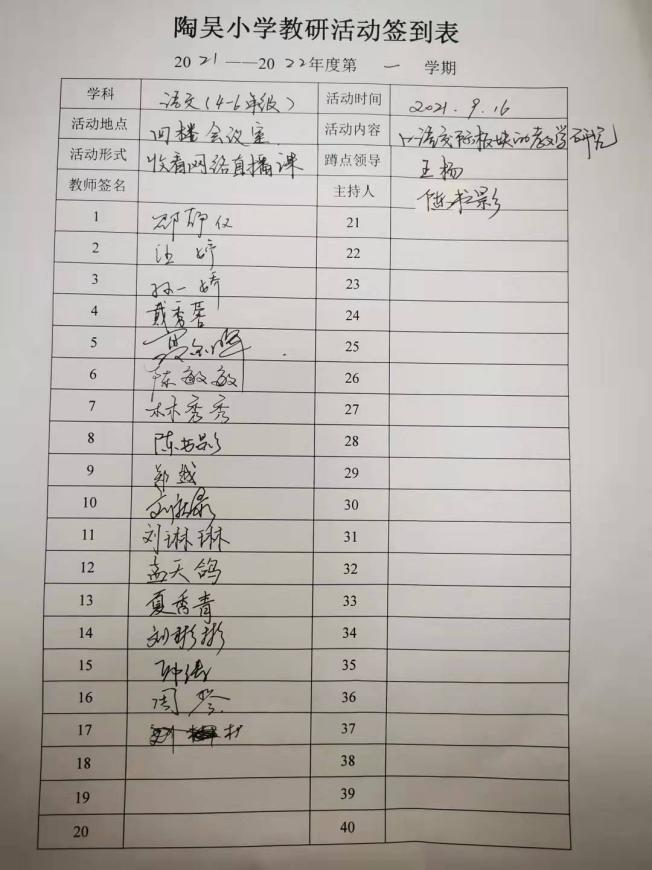 陶吴小学教研活动签到表
2021——2022年度第一学期
学科 语文（4-6年级） 活动时间 2021.9.16
活动地点 四楼会议室 活动内容 口语交际板块的教学研究
活动形式 收看网络直播课 蹲点领导 王杨
教师签名 主持人
1 21
2 汪婷 22
3 孙一娇 23
4 戴秀蓉 24
5 25
6 陈敏敏 26
7 林秀秀 27
8 陈书影 28
9 郑越 29
10 30
11 刘琳琳 31
12 孟天鸽 32
13 夏秀青 33
14 刘彬彬 34
15 35
16 周琴 36
17 37
18 38
19 39
20 40